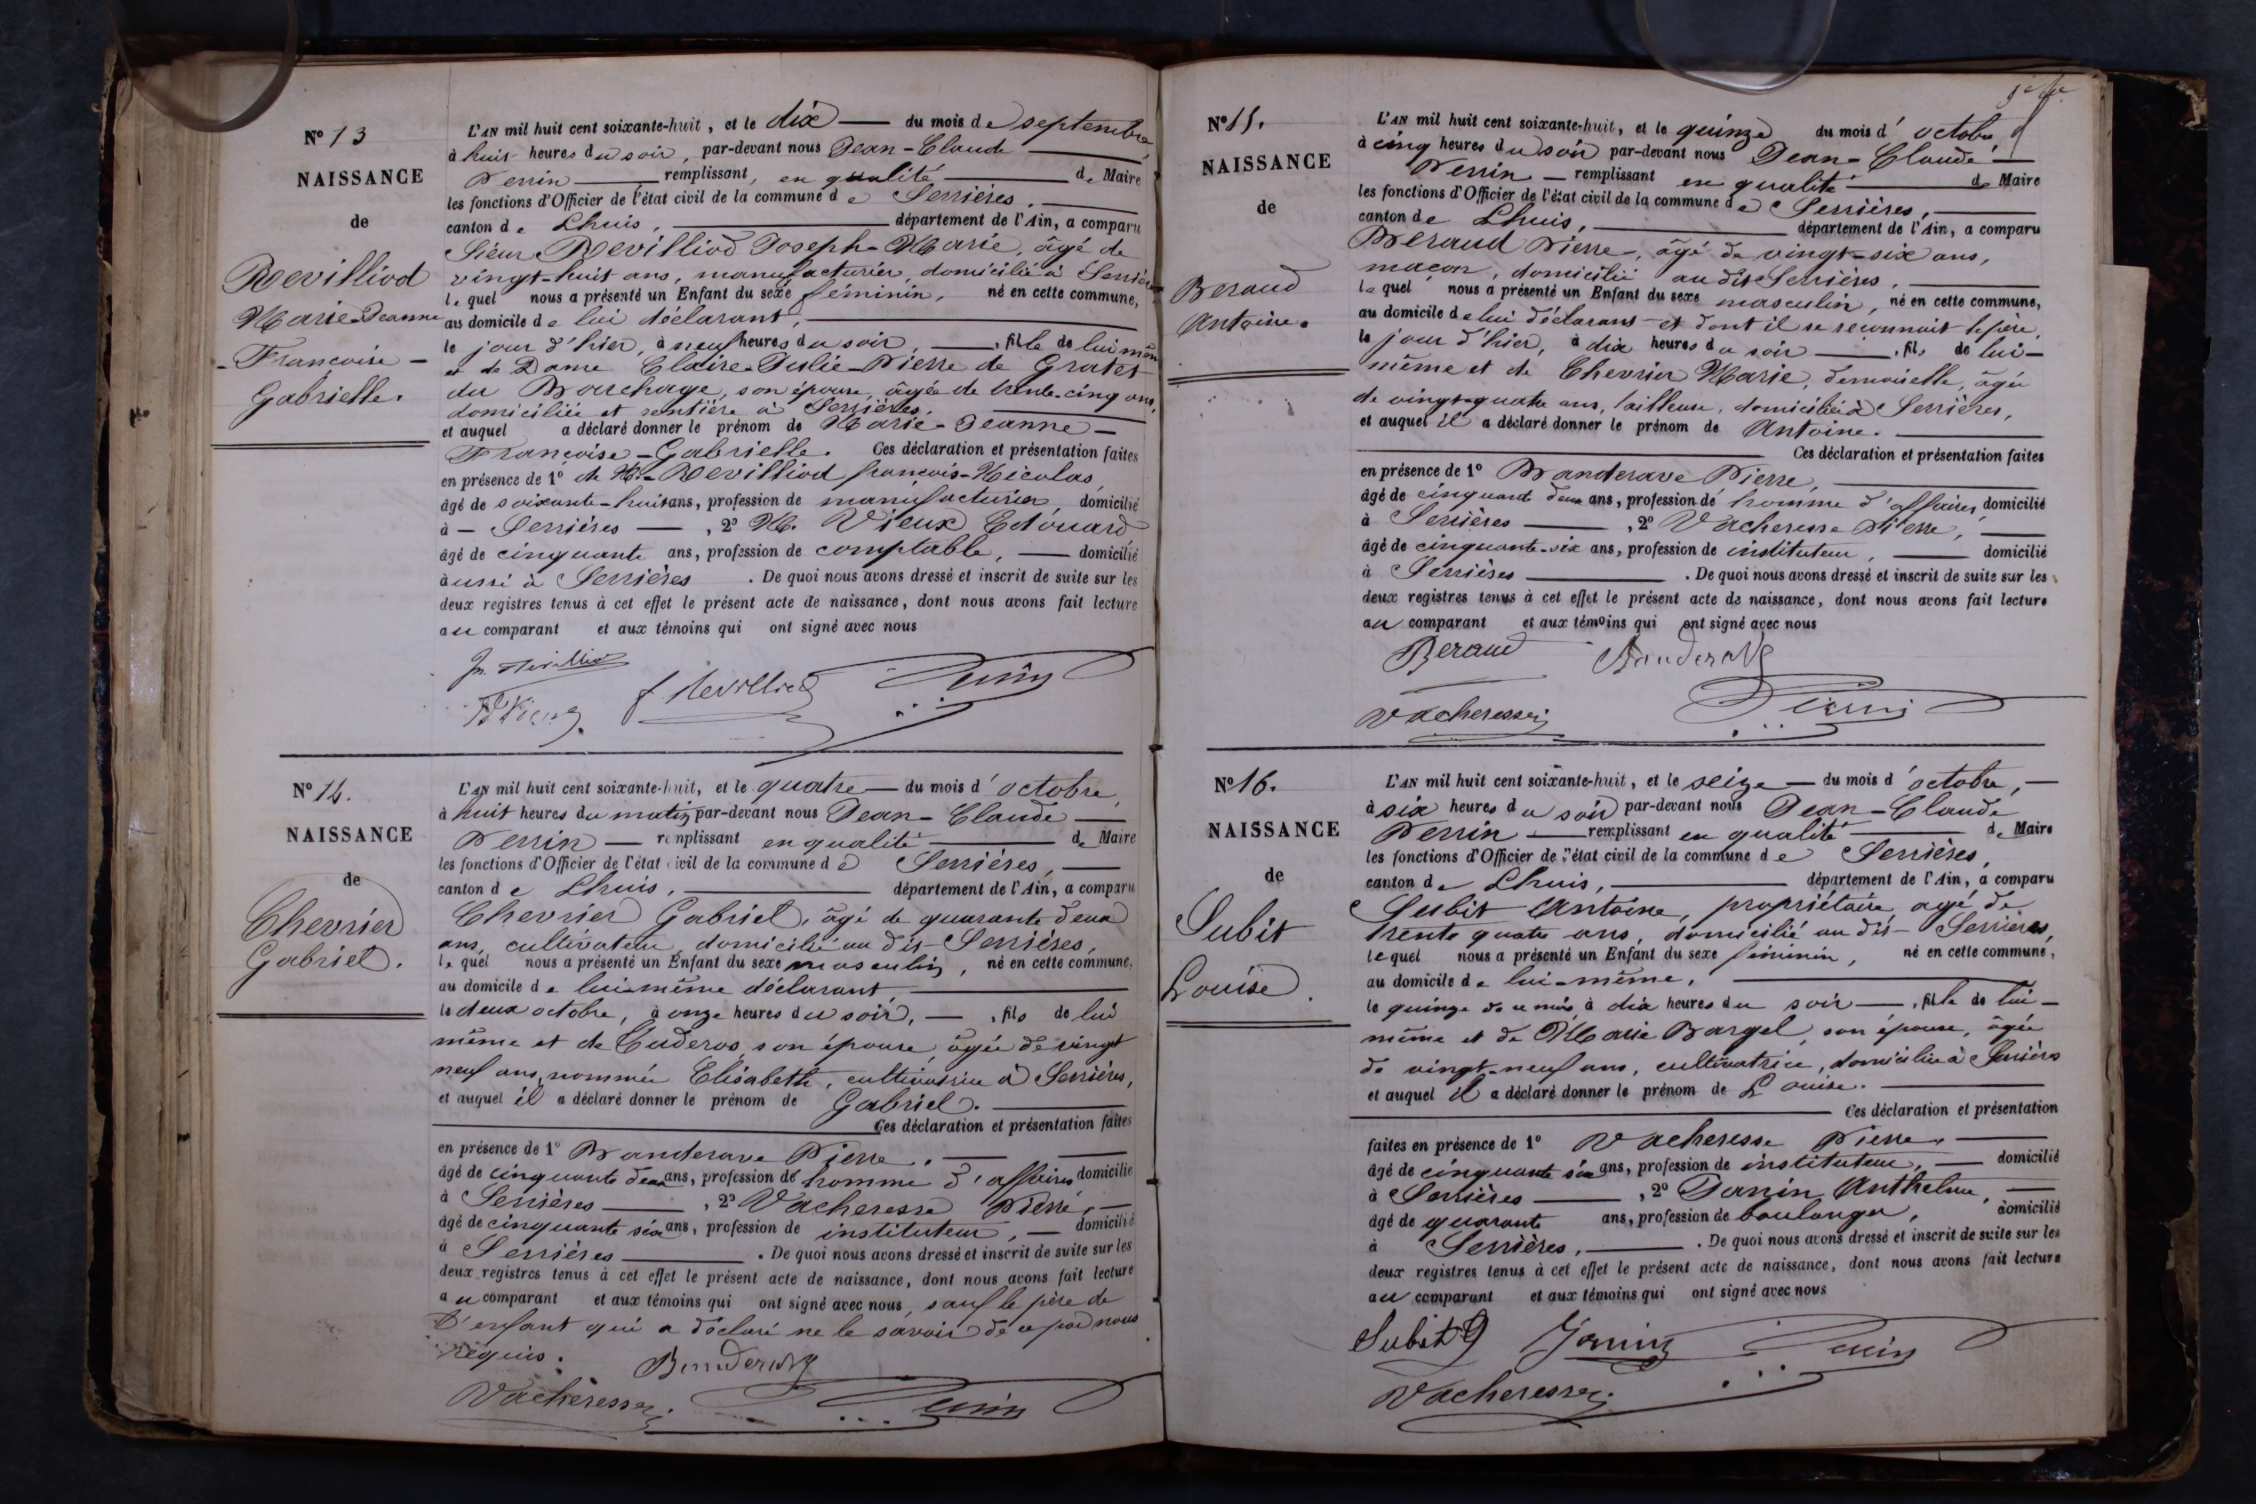 Nº 13
NAISSANCE
de
Revilliod
Marie-Jeanne
- Françoise -
Gabrielle.
L'AN mil huit cent soixante-huit, et le dix — du mois de septembre,
à huit heures du soir, par-devant nous Jean-Claude —
Perrin — remplissant, en qualité — de Maire
les fonctions d'Officier de l'état civil de la commune de Serrières. —
canton de Lhuis, — département de l'Ain, a comparu
Sieur Revilliod Joseph-Marie, âgé de
vingt-huit ans, manufacturier, domicilié à Serrières
lequel nous a présenté un Enfant du sexe féminin, né en cette commune,
au domicile de lui déclarant, —
le jour d'hier, à neuf heures du soir, —, fille de lui même
et de Dame Claire-Julie-Pierre de Gratet
du Bouchage, son épouse, âgée de trente-cinq ans,
domiciliée et rentière à Serrières. —
et auquel a déclaré donner le prénom de Marie-Jeanne —
Françoise-Gabrielle. Ces déclaration et présentation faites
en présence de 1º de Mr Revilliod françois-Nicolas
âgé de soixante-huit ans, profession de manufacturier domicilié
à — Serrières —, 2º M. Vieux Edouard
âgé de cinquante ans, profession de comptable, — domicilié
aussi à Serrières . De quoi nous avons dressé et inscrit de suite sur les
deux registres tenus à cet effet le présent acte de naissance, dont nous avons fait lecture
au comparant et aux témoins qui ont signé avec nous
Revilliod
Vieux f Revilliod Perrin
Nº 14.
NAISSANCE
de
Chevrier
Gabriel.
L'AN mil huit cent soixante-huit, et le quatre — du mois d'octobre,
à huit heures du matin par-devant nous Jean-Claude —
Perrin — remplissant en qualité — de Maire
les fonctions d'Officier de l'état civil de la commune de Serrières, —
canton de Lhuis, — département de l'Ain, a comparu
Chevrier Gabriel, âgé de quarante deux
ans, cultivateur, domicilié au dit Serrières,
lequel nous a présenté un Enfant du sexe masculin, né en cette commune,
au domicile de lui-même déclarant —
le deux octobre, à onze heures du soir, —, fils de lui
même et de Cuderos, son épouse, âgée de vingt
neuf ans, nommée Elisabeth, cultivatrice à Serrières,
et auquel il a déclaré donner le prénom de Gabriel. —
Ces déclaration et présentation faites
en présence de 1º Banderave Pierre. —
âgé de cinquante deux ans, profession de homme d'affaires domicilié
à Serrières —, 2º Vacheresse Pierre, —
âgé de cinquante six ans, profession de instituteur, — domicilié
à Serrières — . De quoi nous avons dressé et inscrit de suite sur les
deux registres tenus à cet effet le présent acte de naissance, dont nous avons fait lecture
au comparant et aux témoins qui ont signé avec nous, sauf le père de
l'enfant qui a déclaré ne le savoir de ce par nous
requis.
Banderave
Vacheresse Perrin
Nº 15.
NAISSANCE
de
Beraud
Antoine.
L'AN mil huit cent soixante-huit, et le quinze du mois d'octobre,
à cinq heures du soir par-devant nous Jean-Claude —
Perrin — remplissant en qualité — de Maire
les fonctions d'Officier de l'état civil de la commune de Serrières, —
canton de Lhuis, — département de l'Ain, a comparu
Beraud Pierre, âgé de vingt-six ans,
maçon, domicilié au dit Serrières, —
lequel nous a présenté un Enfant du sexe masculin, né en cette commune,
au domicile de lui déclarant et dont il se reconnait le père,
le jour d'hier, à dix heures du soir —, fils de lui-
même et de Chevrier Marie, demoiselle, âgée
de vingt-quatre ans, tailleuse, domiciliée à Serrières,
et auquel il a déclaré donner le prénom de Antoine. —
Ces déclaration et présentation faites
en présence de 1º Banderave Pierre, —
âgé de cinquante deux ans, profession de homme d'affaires, domicilié
à Serrières —, 2º Vacheresse Pierre, —
âgé de cinquante-six ans, profession de instituteur, — domicilié
à Serrières — . De quoi nous avons dressé et inscrit de suite sur les
deux registres tenus à cet effet le présent acte de naissance, dont nous avons fait lecture
au comparant et aux témoins qui ont signé avec nous
Beraud Banderave
Vacheresse Perrin
Nº 16.
NAISSANCE
de
Subit
Louise.
L'AN mil huit cent soixante-huit, et le seize — du mois d'octobre, —
à six heures du soir par-devant nous Jean-Claude
Perrin — remplissant en qualité — de Maire
les fonctions d'Officier de l'état civil de la commune de Serrières,
canton de Lhuis, — département de l'Ain, a comparu
Subit Antoine, propriétaire, agé de
trente quatre ans, domicilié au dit Serrières,
lequel nous a présenté un Enfant du sexe féminin, né en cette commune,
au domicile de lui-même, —
le quinze de ce mois, à dix heures du soir —, fille de lui-
même et de Marie Bargel, son épouse, âgée
de vingt-neuf ans, cultivatrice, domiciliée à Serrières
et auquel il a déclaré donner le prénom de Louise. —
Ces déclaration et présentation
faites en présence de 1º Vacheresse Pierre, —
âgé de cinquante six ans, profession de instituteur, — domicilié
à Serrières —, 2º Janin Anthelme, —
âgé de quarante ans, profession de boulanger, domicilié
à Serrières, — . De quoi nous avons dressé et inscrit de suite sur les
deux registres tenus à cet effet le présent acte de naissance, dont nous avons fait lecture
au comparant et aux témoins qui ont signé avec nous
Subit Janin Perrin
Vacheresse